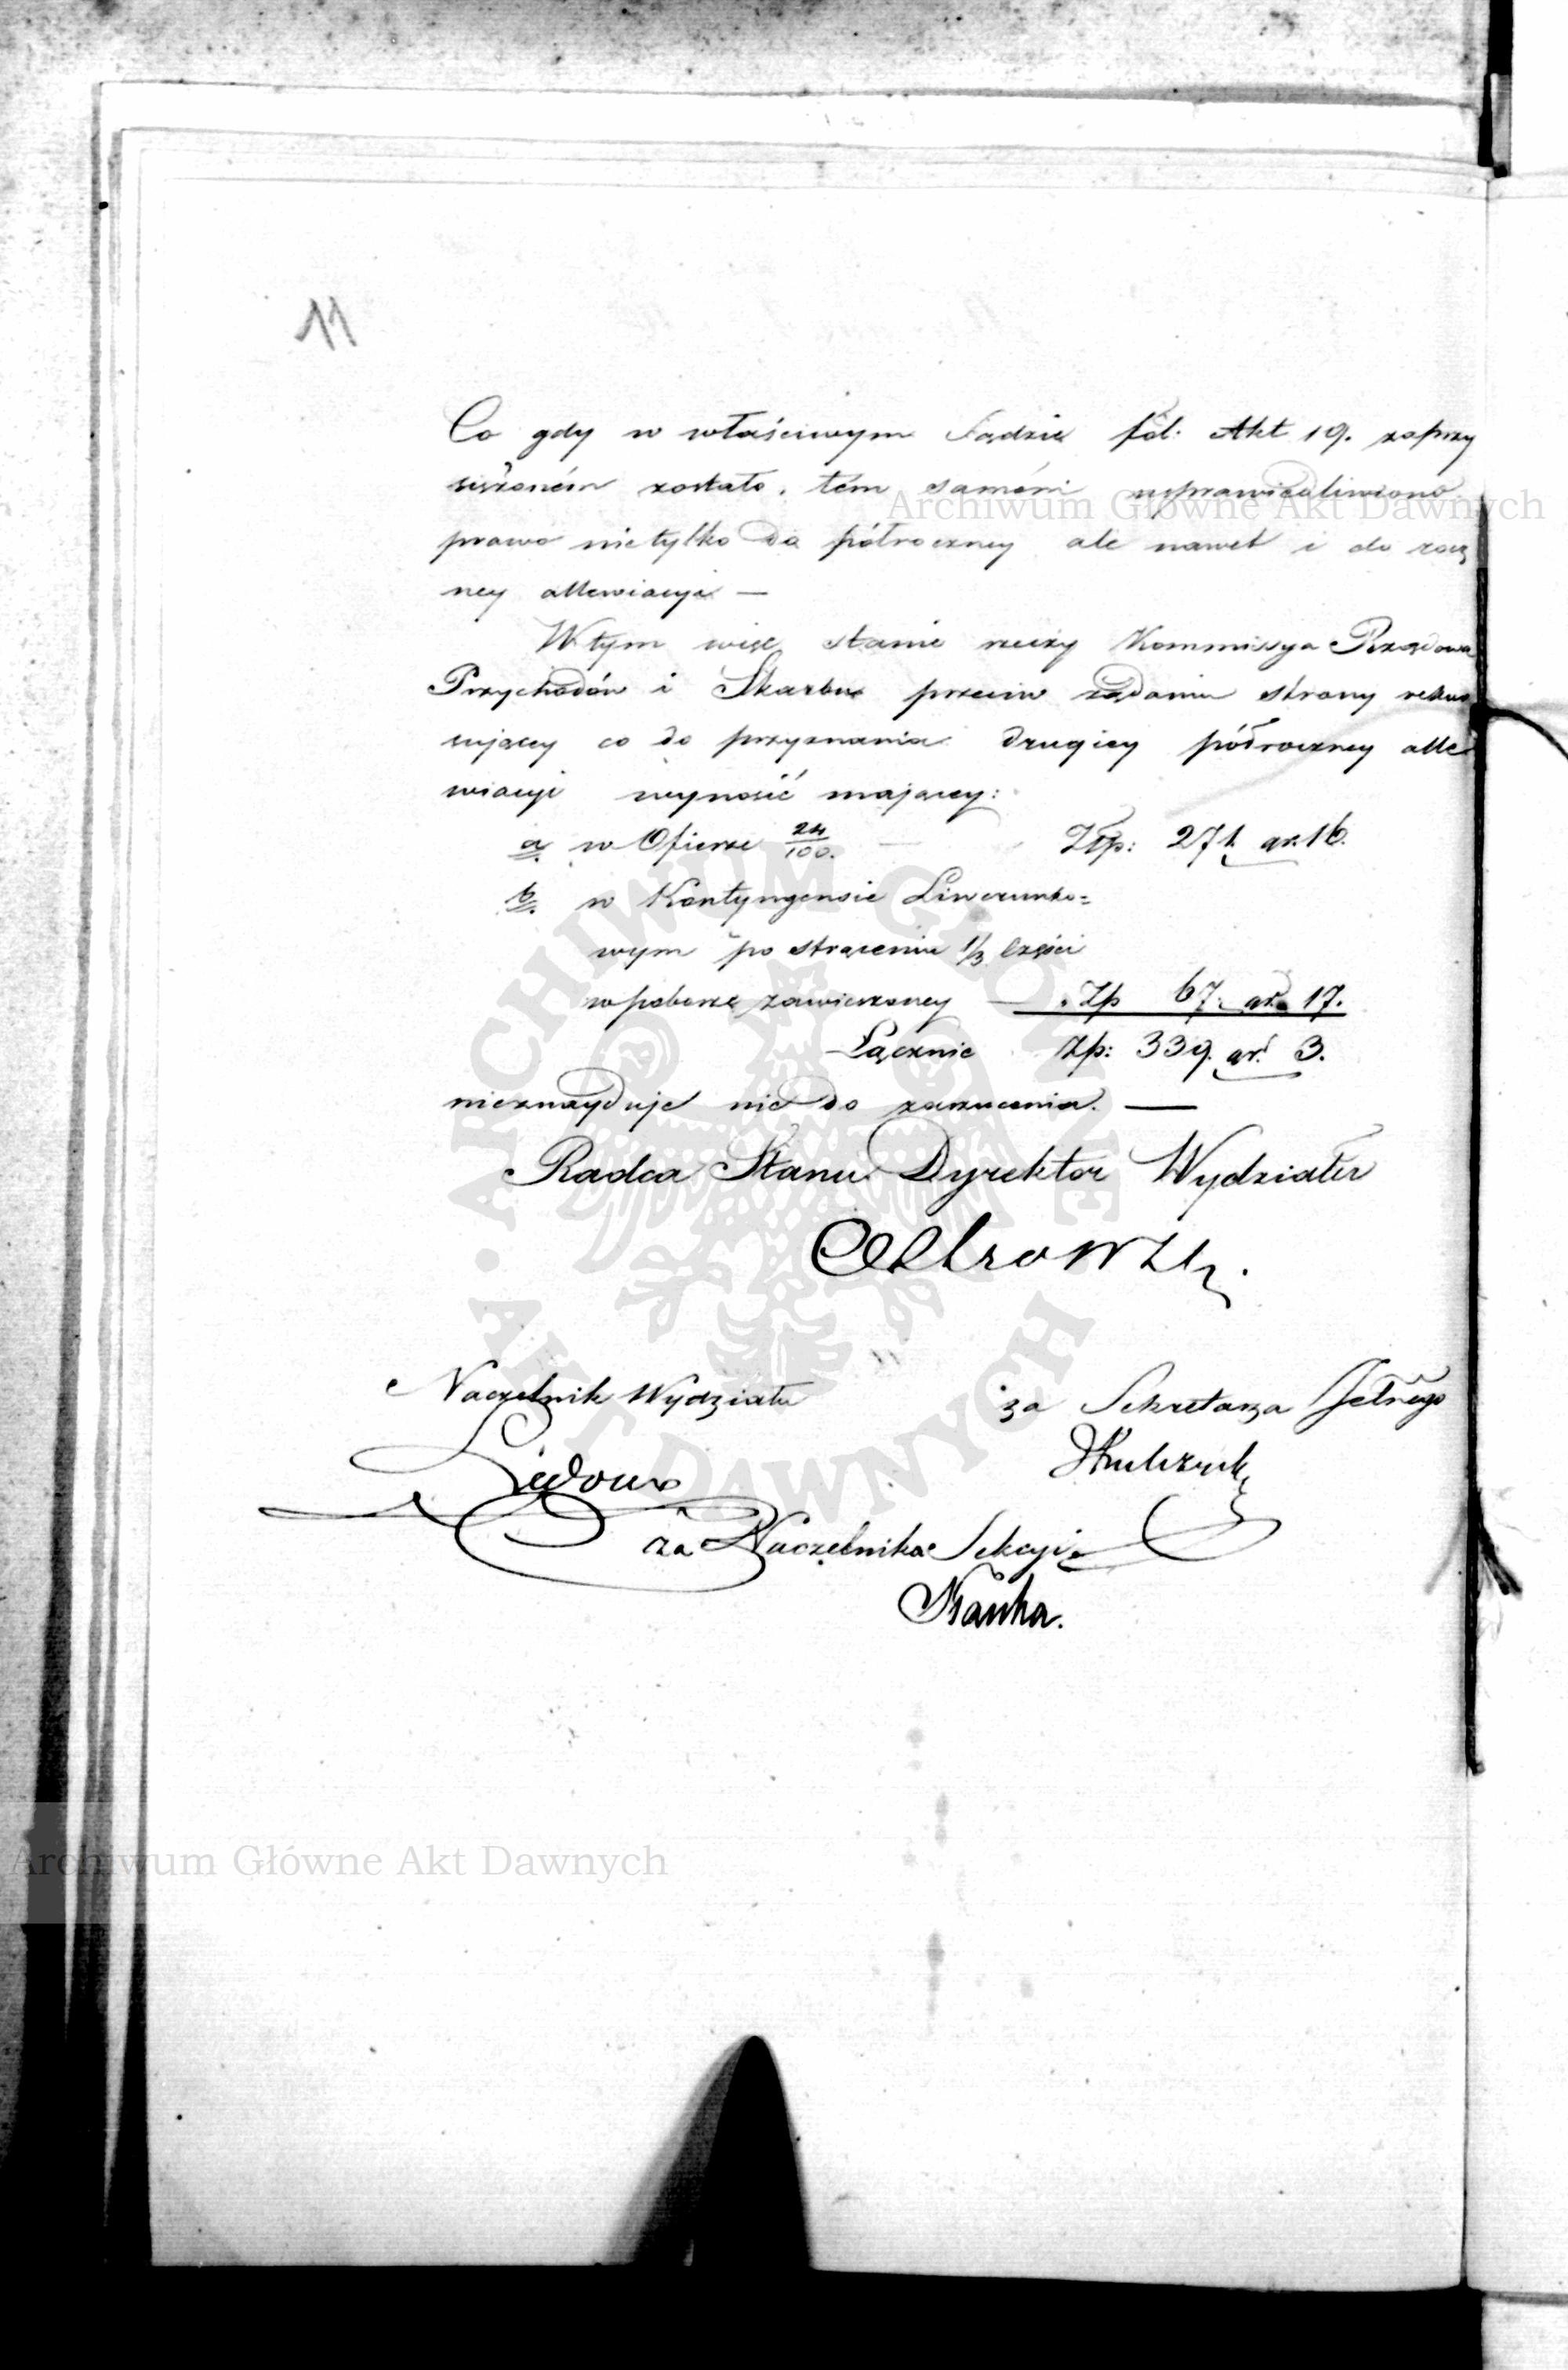 11
Co gdy w właściwym Sądzie fol: Akt 19. zaprzy
siężoném zostało, tém samém usprawiedliwiono
prawo nietylko do półroczney ale nawet i do rocz
ney allewiacyi —
W tym więc stanie rzeczy Kommissya Rządowa
Przychodów i Skarbu przeciw żądaniu strony reku
rującey co do przyznania drugiey półroczney alle
wiacyi wynosić mającey:
a. w Ofierze 24/100. Złp: 271 gr. 16.
b. w Kontyngensie Liwerunko=
wym po strąceniu 1/3 części
w poborze zawieszoney — Zp 67. gr. 17.
Łącznie Zp: 339. gr. 3.
nieznayduje nic do zarzucenia. —
Radca Stanu Dyrektor Wydziału
Naczelnik Wydziału
za Sekretarza Jelnego
Ledoux
za Naczelnika Sekcyi
Archiwum Główne Akt Dawnych
ARCHIWUM GŁÓWNE • AKT DAWNYCH •
Archiwum Główne Akt Dawnych